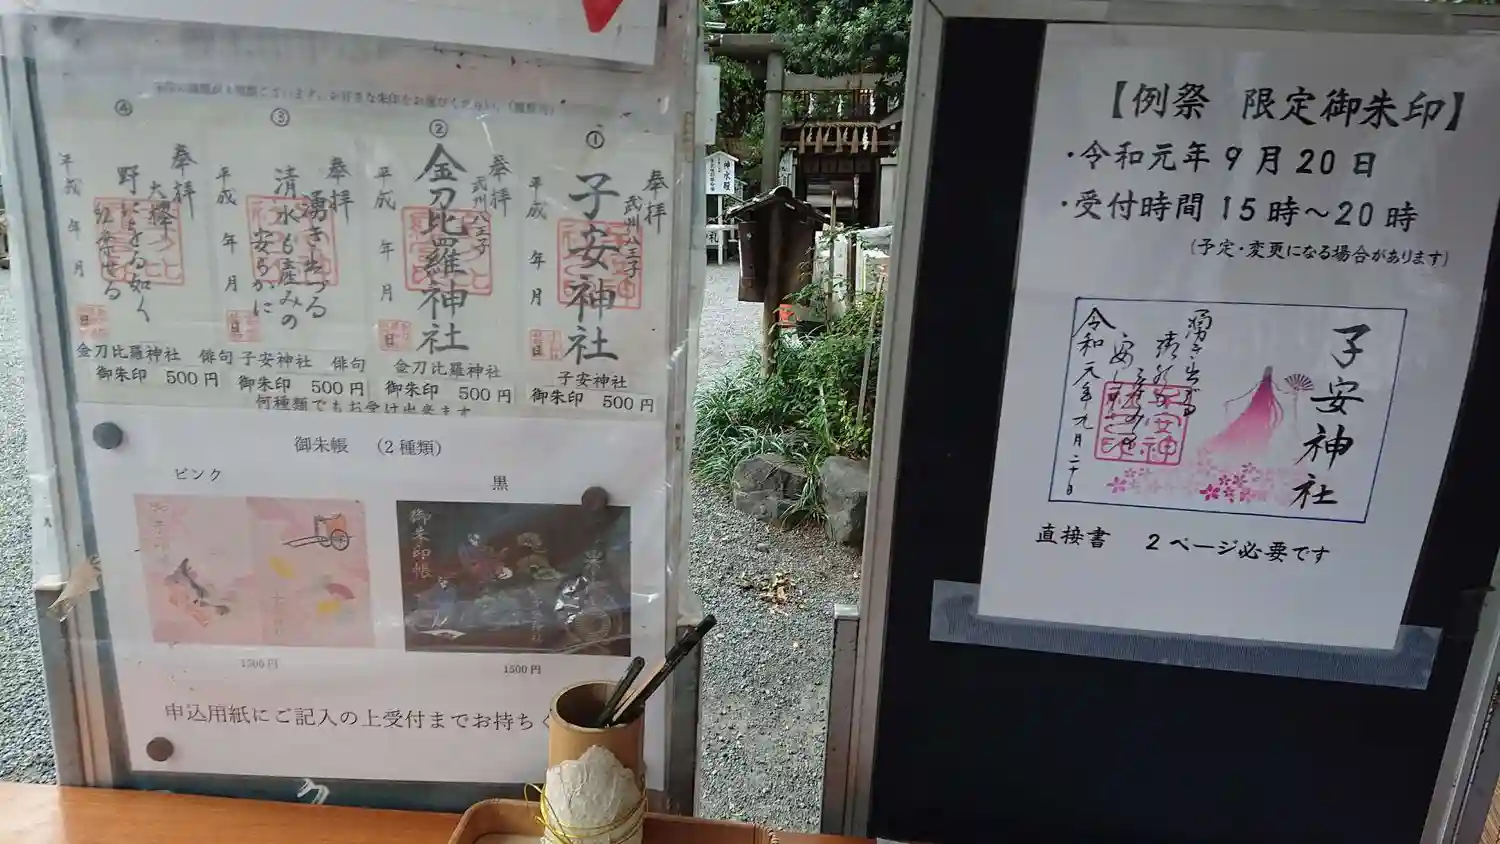 ①
奉拝
武州八王子
子安神社
平成 年 月 日
子安神社
御朱印 500円
②
奉拝
武州八王子
金刀比羅神社
平成 年 月 日
金刀比羅神社
御朱印 500円
③
奉拝
湧き出づる
清水も産みの
安らかに
平成 年 月 日
子安神社 俳句
御朱印 500円
④
奉拝
大欅
野
如く
平成 年 月 日
金刀比羅神社 俳句
御朱印 500円
何種類でもお受け出来ます
御朱帳 (2種類)
ピンク
1500円
黒
御朱印帳
1500円
申込用紙にご記入の上受付までお持ち
【例祭 限定御朱印】
・令和元年9月20日
・受付時間15時~20時
(予定・変更になる場合があります)
子安神社
湧き出づる
令和元年九月二十日
直接書 2ページ必要です
神水殿